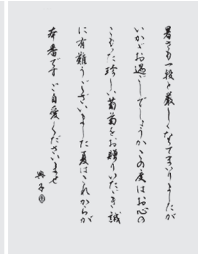 暑さも一段と厳しくなってまいりましたが
いかがお過しでしょうかこの度はお心の
こもった珍しい葡萄をお贈りいただき誠
に有難うございました夏はこれからが
本番ですご自愛くださいませ